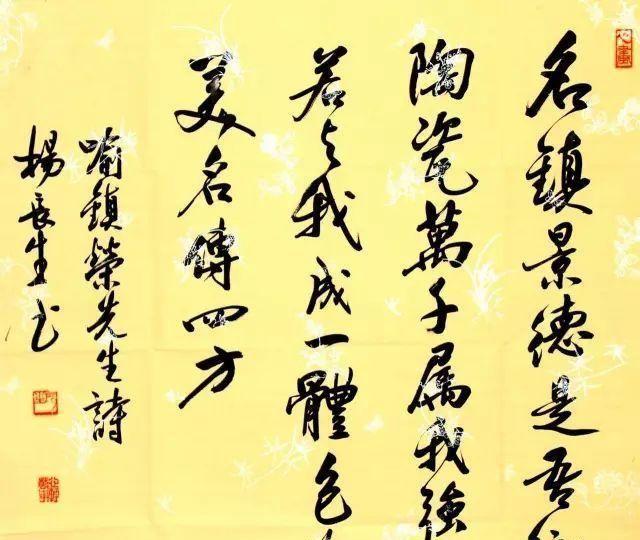 心畫
名鎮景德是吾
陶瓷萬子属我強
若与我成一體色
美名傳四方
喻鎮榮先生詩
楊長生书